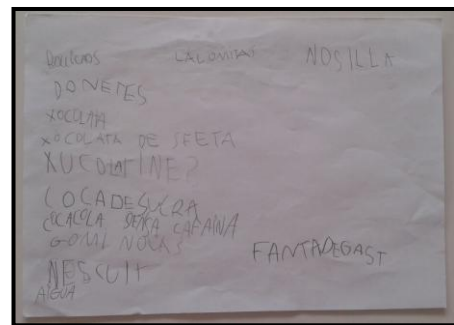 LALOMITAS NOSILLA
DONETES
XOCOLATA
XOCOLATA DE JFETA
XUCOLATINE?
COCADESUCRA
COCACOLA SENSA CAFAINA
GOMI NOLAS
FANTADEGAST
NESCUIT
AIGUA